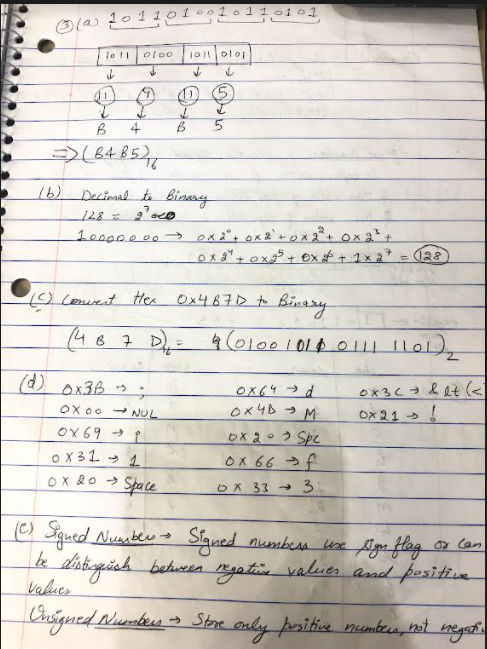 ③ (a) 1011010010110101
1011 | 0100 | 1011 | 0101
↓ ↓ ↓ ↓
11 4 11 5
↓ ↓ ↓ ↓
B 4 B 5
⇒ (B4B5)₁₆
(b) Decimal to Binary
128 = 2⁷
10000000 → 0x2⁰ + 0x2¹ + 0x2² + 0x2³ +
0x2⁴ + 0x2⁵ + 0x2⁶ + 1x2⁷ = 128
(c) Convert Hex 0x4B7D to Binary
(4 B 7 D)₁₆ = (0100 1011 0111 1101)₂
(d) 0x3B → ; 0x64 → d 0x3C → & lt (<
0x00 → NUL 0x4D → M 0x21 → !
0x69 → i 0x20 → Spc
0x31 → 1 0x66 → f
0x20 → Space 0x33 → 3
(e) Signed Number → Signed numbers use sign flag or can
be distinguish between negative values and positive
values
Unsigned Numbers → Store only positive numbers, not negativ